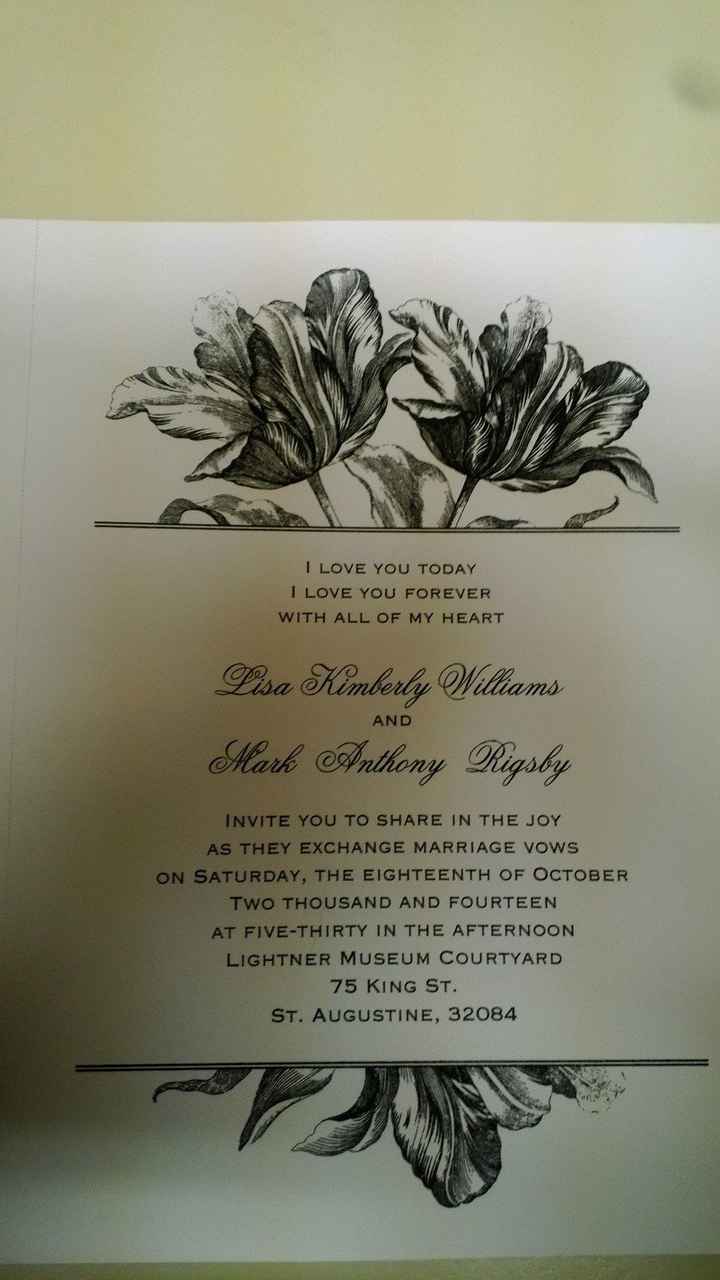 I LOVE YOU TODAY
I LOVE YOU FOREVER
WITH ALL OF MY HEART
Lisa Kimberly Williams
AND
Mark Anthony Rigsby
INVITE YOU TO SHARE IN THE JOY
AS THEY EXCHANGE MARRIAGE VOWS
ON SATURDAY, THE EIGHTEENTH OF OCTOBER
TWO THOUSAND AND FOURTEEN
AT FIVE-THIRTY IN THE AFTERNOON
LIGHTNER MUSEUM COURTYARD
75 KING ST.
ST. AUGUSTINE, 32084